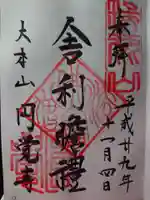 奉拝
平成廿九年
十一月四日
舎利瞻禮
大本山
円覚寺